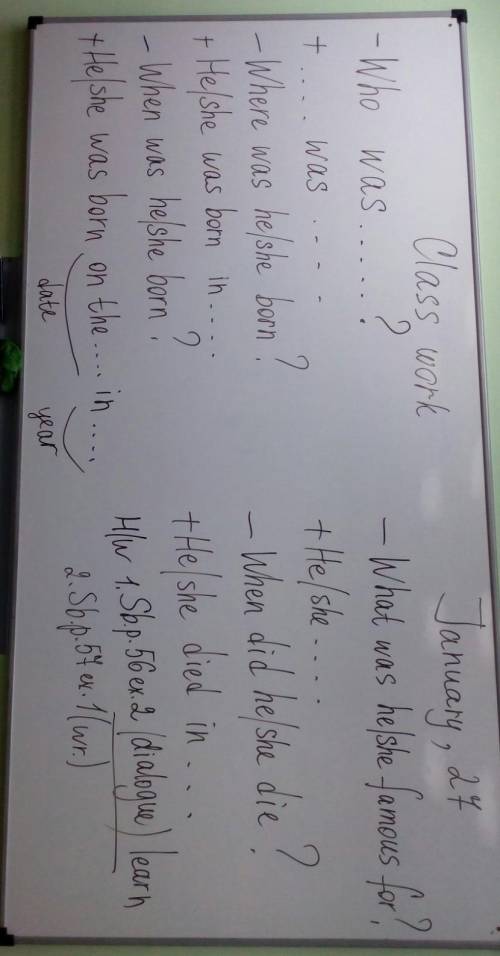 Class work
January, 27
- Who was.....?
+ .... was ....
- Where was he/she born?
+ He/she was born in.....
- When was he/she born?
+ He/she was born on the.... in ....
date year
- What was he/she famous for?
+ He/she....
- When did he/she die?
+ He/she died in...
H/w 1. Sb.p.56 ex.2 (dialogue) learn
2. Sb.p.57 ex.1 (wr.)